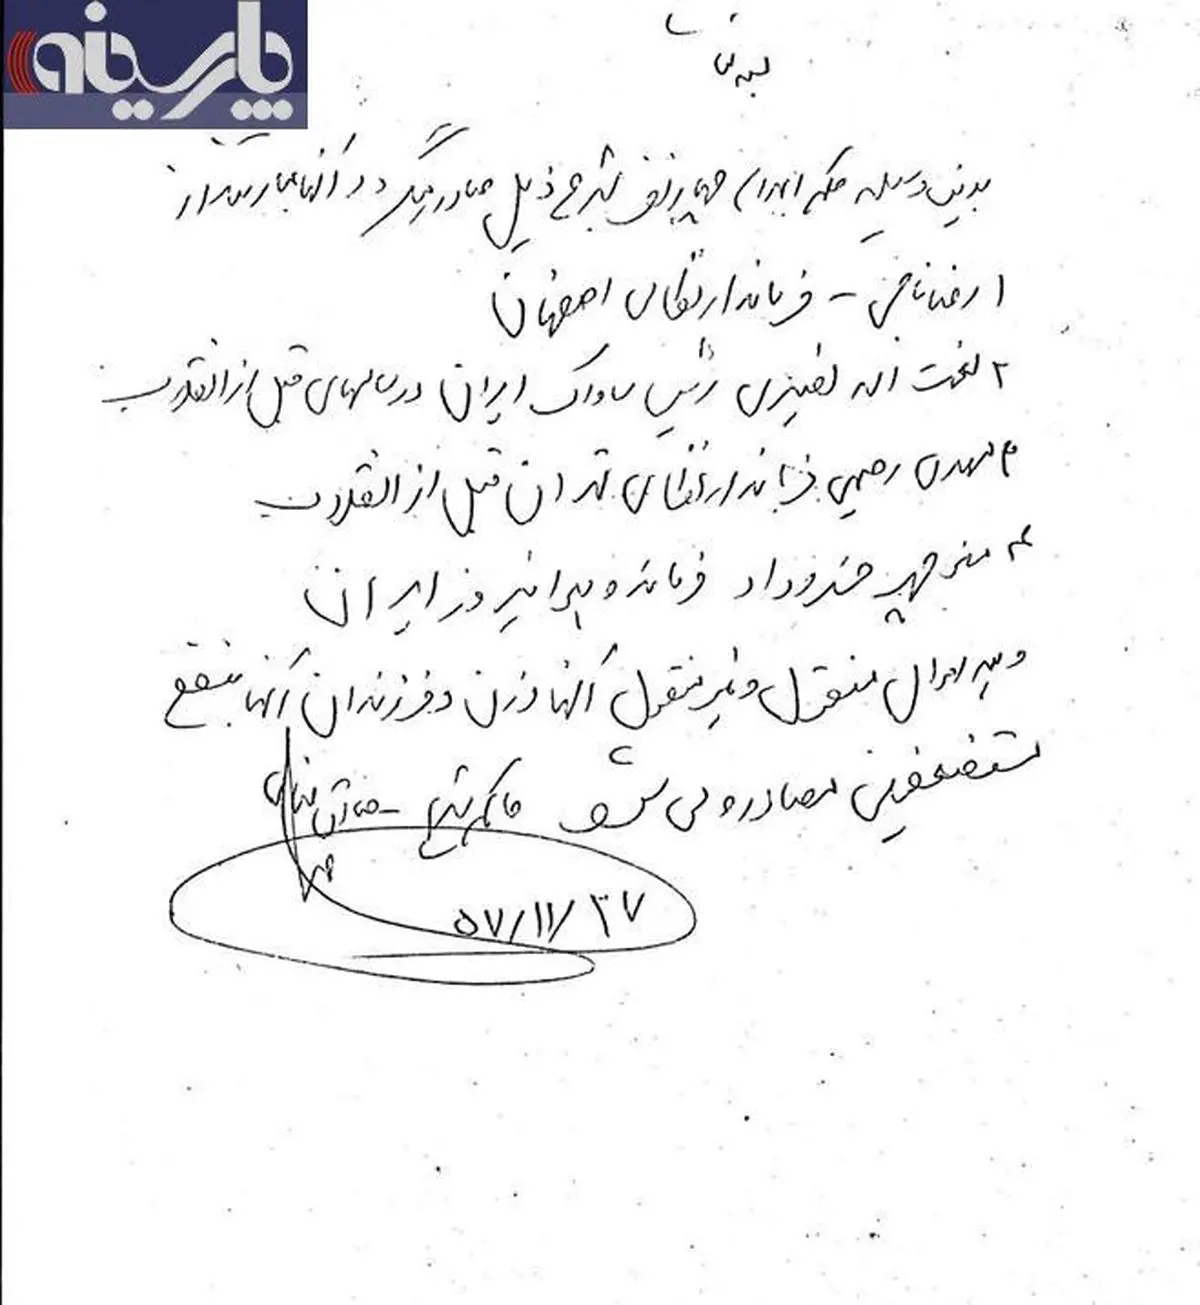 پارسینه
بسمه تعالی
بدین وسیله حکم اعدام چهار نفر بشرح ذیل صادر میگردد آنها عبارتند از
۱ رضا ناجی - فرماندار نظامی اصفهان
۲ نعمت اله نصیری رئیس ساواک ایران در سالهای قبل از انقلاب
۳ مهدی رحیمی فرماندار نظامی تهران قبل از انقلاب
۴ منوچهر خسروداد فرمانده هوانیروز ایران
و همه اموال منقول و غیر منقول آنها و زن و فرزندان آنها بنفع
مستضعفین مصادره می شود حاکم شرع - صادق خلخالی
۵۷/۱۱/۲۷